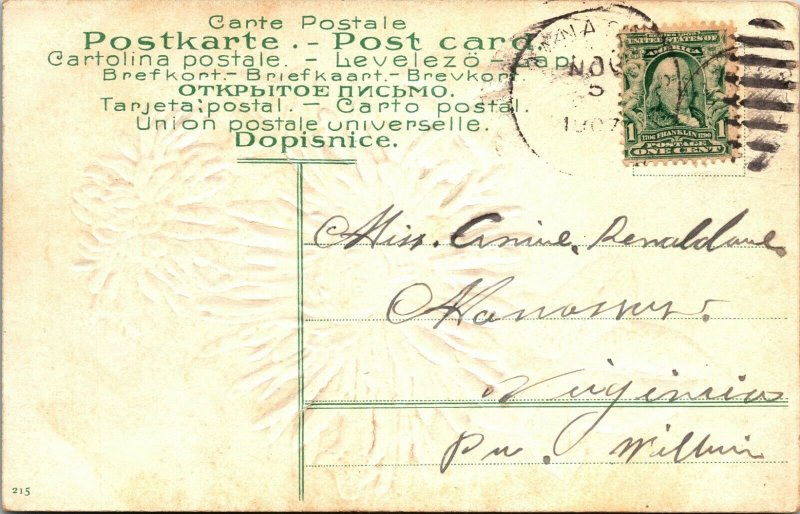 Carte Postale
Postkarte. - Post card.
Cartolina postale. - Levelező-lap
Brefkort.- Briefkaart.- Brevkort
ОТКРЫТОЕ ПИСЬМО.
Tarjeta postal. - Carto postal.
Union postale universelle.
Dopisnice.
NOV
5
1907
SERIES 1902
UNITED STATES OF
AMERICA
1 1706 FRANKLIN 1790 1
POSTAGE
ONE CENT
Miss. Annie,
Manassas.
Virginia
215